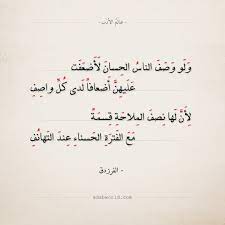 عالم الأدب
وَلَو وَصَفَ الناسُ الحِسانَ لَأَضعَفَت
عَلَيهِنَّ أَضعافاً لَدى كُلِّ واصِفِ
لِأَنَّ لَها نِصفَ المِلاحَةِ قِسمَةً
مَعَ الفَترَةِ الحَسناءِ عِندَ التَهانُفِ
- الفرزدق
adabworld.com